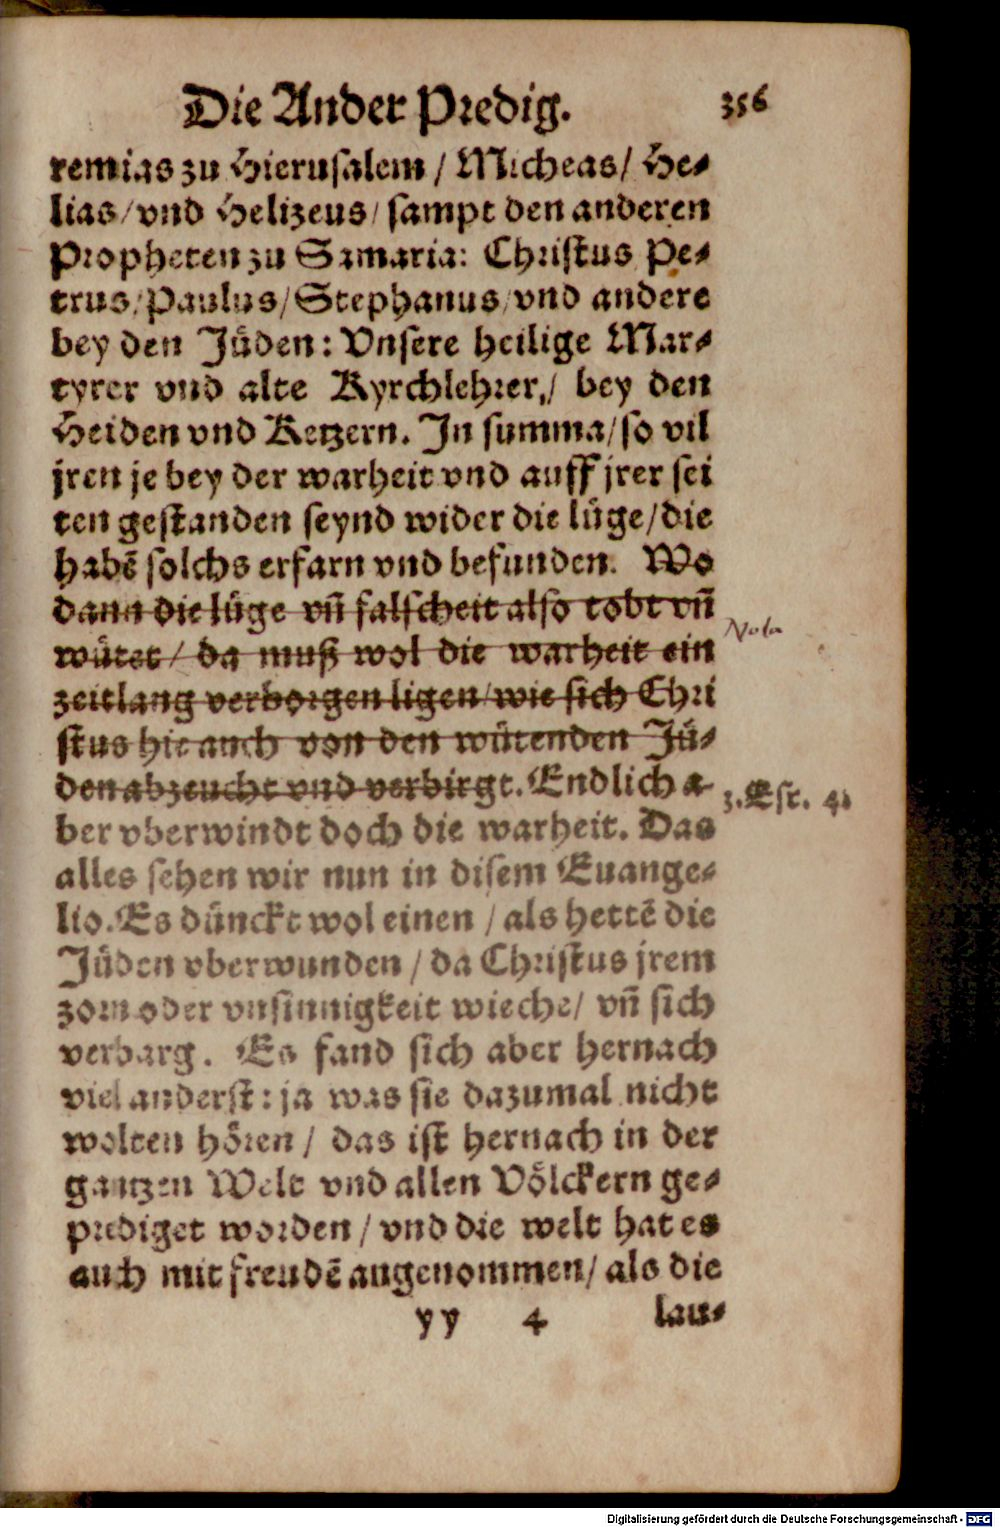 Die Ander Predig. 356
remias zu Hierusalem / Micheas / He-
lias / vnd Helizeus / sampt den anderen
Propheten zu Samaria: Christus Pe-
trus / Paulus / Stephanus / vnd andere
bey den Jüden: Vnsere heilige Mar-
tyrer vnd alte Kyrchlehrer / bey den
Heiden vnd Ketzern. In summa / so vil
jren je bey der warheit vnd auff jrer sei
ten gestanden seynd wider die lüge / die
habē solchs erfarn vnd befunden. Wo
dann die lüge vñ falscheit also tobt vñ
wütet / da muß wol die warheit ein
Nota
zeitlang verborgen ligen / wie sich Chri
stus hie auch von den wütenden Jü-
den abzeucht vnd verbirgt. Endlich a-
3. Esr. 4.
ber vberwindt doch die warheit. Das
alles sehen wir nun in disem Euange-
lio. Es dünckt wol einen / als hettē die
Jüden vberwunden / da Christus jrem
zorn oder vnsinnigkeit wieche / vñ sich
verbarg. Es fand sich aber hernach
viel anderst: ja was sie dazumal nicht
wolten hören / das ist hernach in der
gantzen Welt vnd allen Völckern ge-
prediget worden / vnd die welt hat es
auch mit freudē angenommen / als die
yy 4 lau-
Digitalisierung gefördert durch die Deutsche Forschungsgemeinschaft - DFG